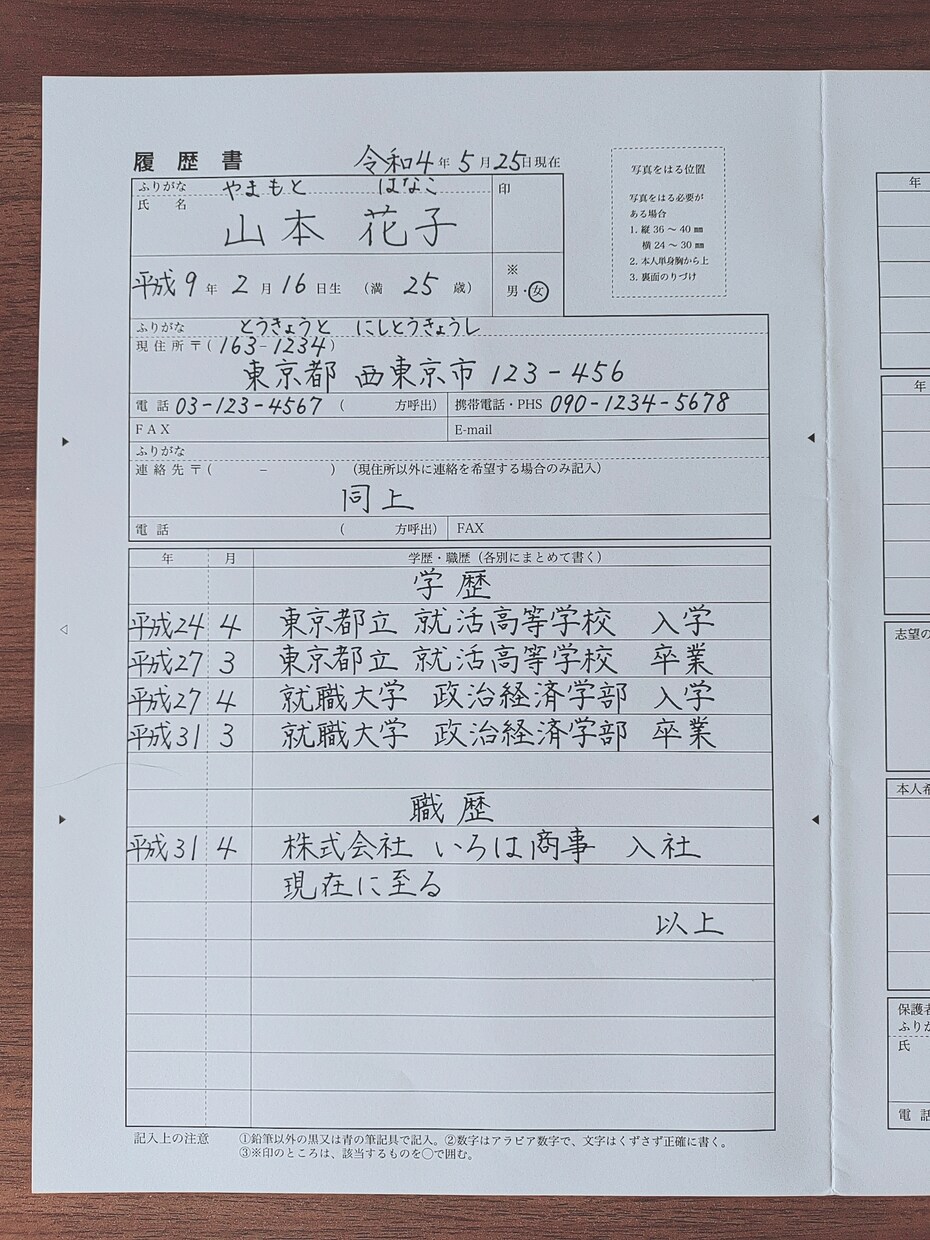 履歴書 令和4年5月25日現在
ふりがな やまもと はなこ 印
氏名 山本 花子
平成9年2月16日生 (満 25 歳) ※ 男・女
写真をはる位置
写真をはる必要が
ある場合
1. 縦 36 ～ 40 ㎜
横 24 ～ 30 ㎜
2. 本人単身胸から上
3. 裏面のりづけ
ふりがな とうきょうと にしとうきょうし
現住所 〒(163-1234)
東京都 西東京市 123-456
電話 03-123-4567 ( 方呼出) 携帯電話・PHS 090-1234-5678
FAX E-mail
ふりがな
連絡先 〒( - ) (現住所以外に連絡を希望する場合のみ記入)
同上
電話 ( 方呼出) FAX
年 月 学歴・職歴 (各別にまとめて書く)
学歴
平成24 4 東京都立 就活高等学校 入学
平成27 3 東京都立 就活高等学校 卒業
平成27 4 就職大学 政治経済学部 入学
平成31 3 就職大学 政治経済学部 卒業
職歴
平成31 4 株式会社 いろは商事 入社
現在に至る
以上
記入上の注意 ①鉛筆以外の黒又は青の筆記具で記入。②数字はアラビア数字で、文字はくずさず正確に書く。
③※印のところは、該当するものを〇で囲む。
年
年
志望の
本人希
保護者
ふりが
氏
電話